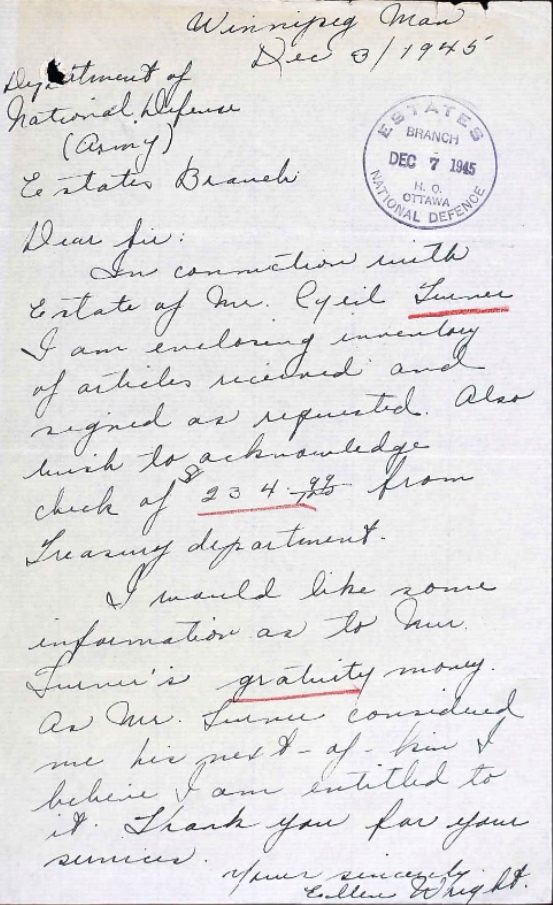 Winnipeg Man
Dec 3/1945
Department of
National Defense
(Army)
Estates Branch
ESTATES
BRANCH
DEC 7 1945
H. Q.
OTTAWA
NATIONAL DEFENCE
Dear Sir:
In connection with
Estate of Mr. Cyril Turner
I am enclosing inventory
of articles received and
signed as requested. Also
wish to acknowledge
check of $234.99 from
Treasury department.
I would like some
information as to Mr.
Turner's gratuity money.
As Mr. Turner considered
me his next-of-kin I
believe I am entitled to
it. Thank you for your
services.
Yours sincerely
Ellen Wright.